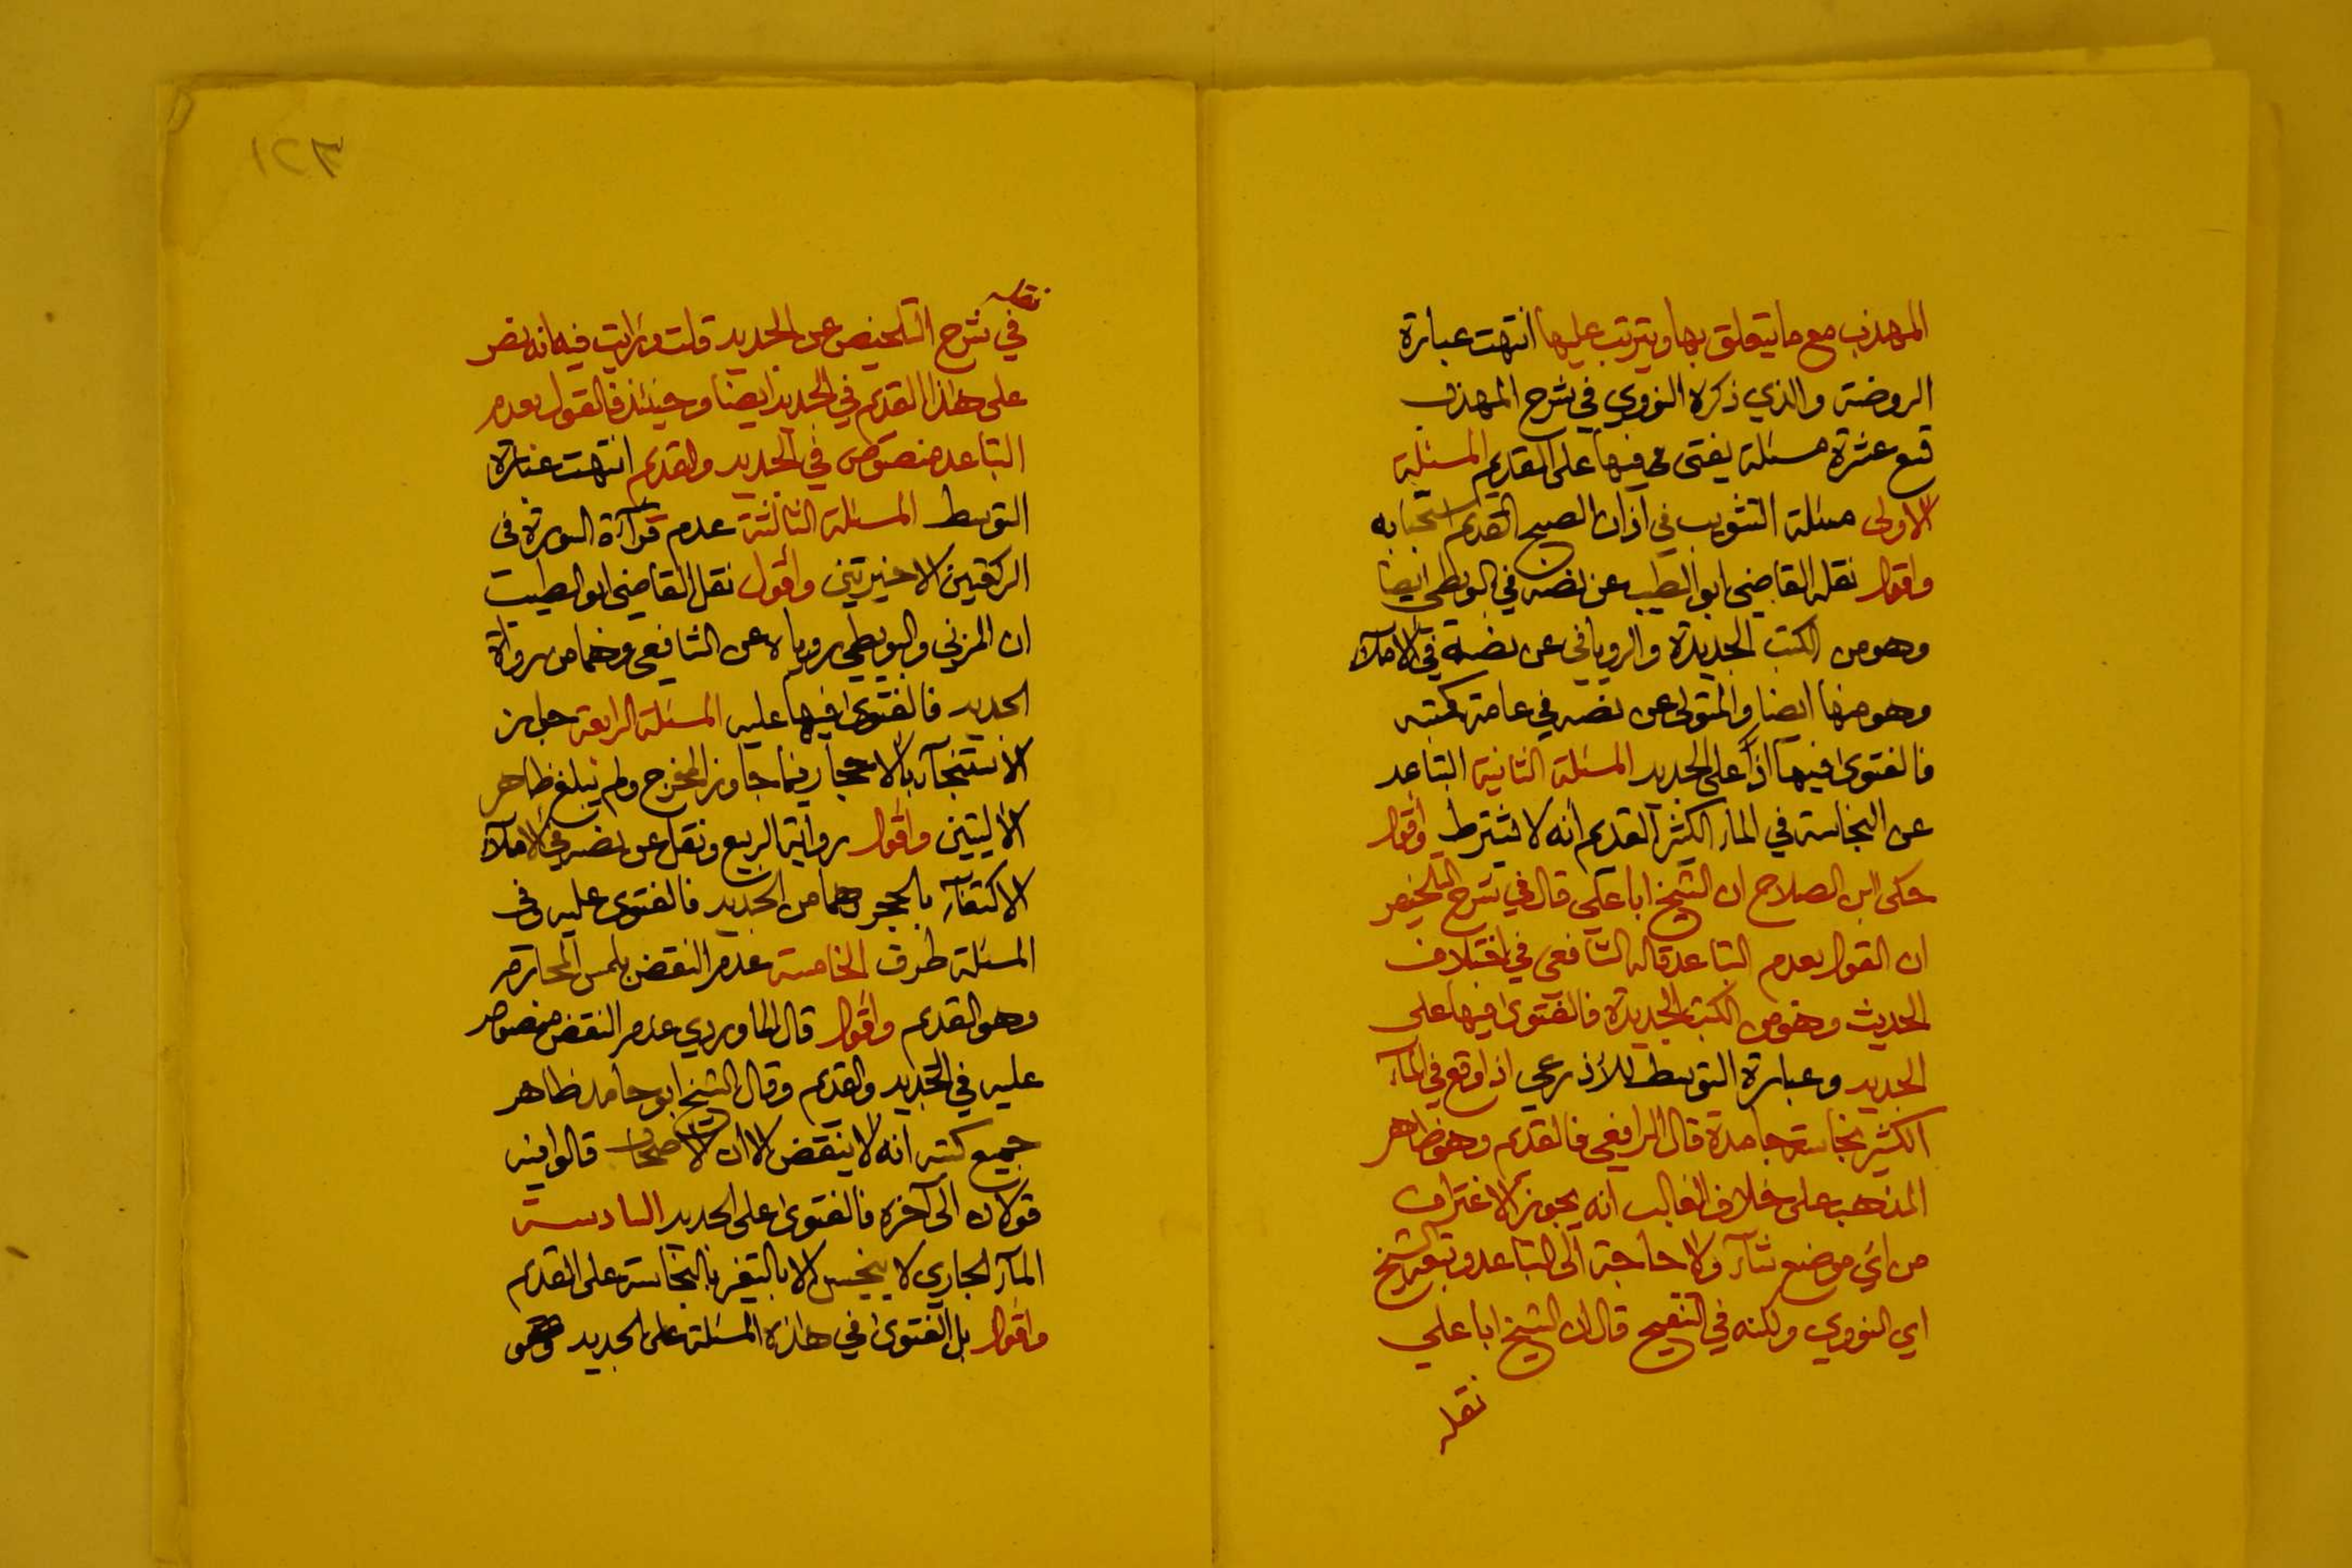 المهذب مع ما يتعلق بها ويترتب عليها انتهت عبارة
الروضة والذي ذكره النووي في شرح المهذب
تسع عشرة مسئلة يفتى فيها على القديم المسئلة
الاولى مسئلة التثويب في اذان الصبح القديم استحبابه
واقول نقله القاضي ابو الطيب عن نصه في البويطي ايضا
وهو من الكتب الجديدة والروياني عن نصه في الاملاء
وهو منها ايضا والمتولي عن نصه في عامة كتبه
فالفتوى فيها اذا على الجديد المسئلة الثانية التباعد
عن النجاسة في الماء الكثير القديم انه لا يشترط واقول
حكى ابن الصلاح ان الشيخ ابا علي قال في شرح التلخيص
ان القول بعدم التباعد قاله الشافعي في اختلاف
الحديث وهو من الكتب الجديدة فالفتوى فيها على
الجديد وعبارة التوسط للأذرعي اذا وقع في الماء
الكثير نجاسة جامدة قال الرافعي فالقديم وهو ظاهر
المذهب على خلاف الغالب انه يجوز الاغتراف
من اي موضع شاء ولا حاجة الى التباعد وتبعه الشيخ
اي النووي ولكنه في التنقيح قال ان الشيخ ابا علي
نقله
٦٢١
نقله
في شرح التلخيص عن الجديد قلت ورايت فيه انه نص
على هذا القديم في الجديد ايضا وحينئذ فالقول بعدم
التباعد منصوص في الجديد والقديم انتهت عبارة
التوسط المسئلة الثالثة عدم قرآءة السورة في
الركعتين الاخيرتين واقول نقل القاضي ابو الطيب
ان المزني والبويطي روياه عن الشافعي وهما من رواة
الجديد فالفتوى فيها عليه المسئلة الرابعة جواز
الاستنجآء بالاحجار فيما جاوز المخرج ولم يبلغ ظاهر
الأليتين واقول رواية الربيع ونقل عن نصه في الاملاء
الاكتفآء بالحجر وهما من الجديد فالفتوى عليه وفي
المسئلة طرق الخامسة عدم النقض بلمس المحارم
وهو القديم واقول قال الماوردي عدم النقض منصوص
عليه في الجديد والقديم وقال الشيخ ابو حامد ظاهر
جميع كتبه انه لا ينقض الا ان الاصحاب قالوا فيه
قولان الى آخره فالفتوى على الجديد السادسة
المآء الجاري لا ينجس الا بالتغير بالنجاسة على القديم
واقول بل الفتوى في هذه المسئلة على الجديد وهو